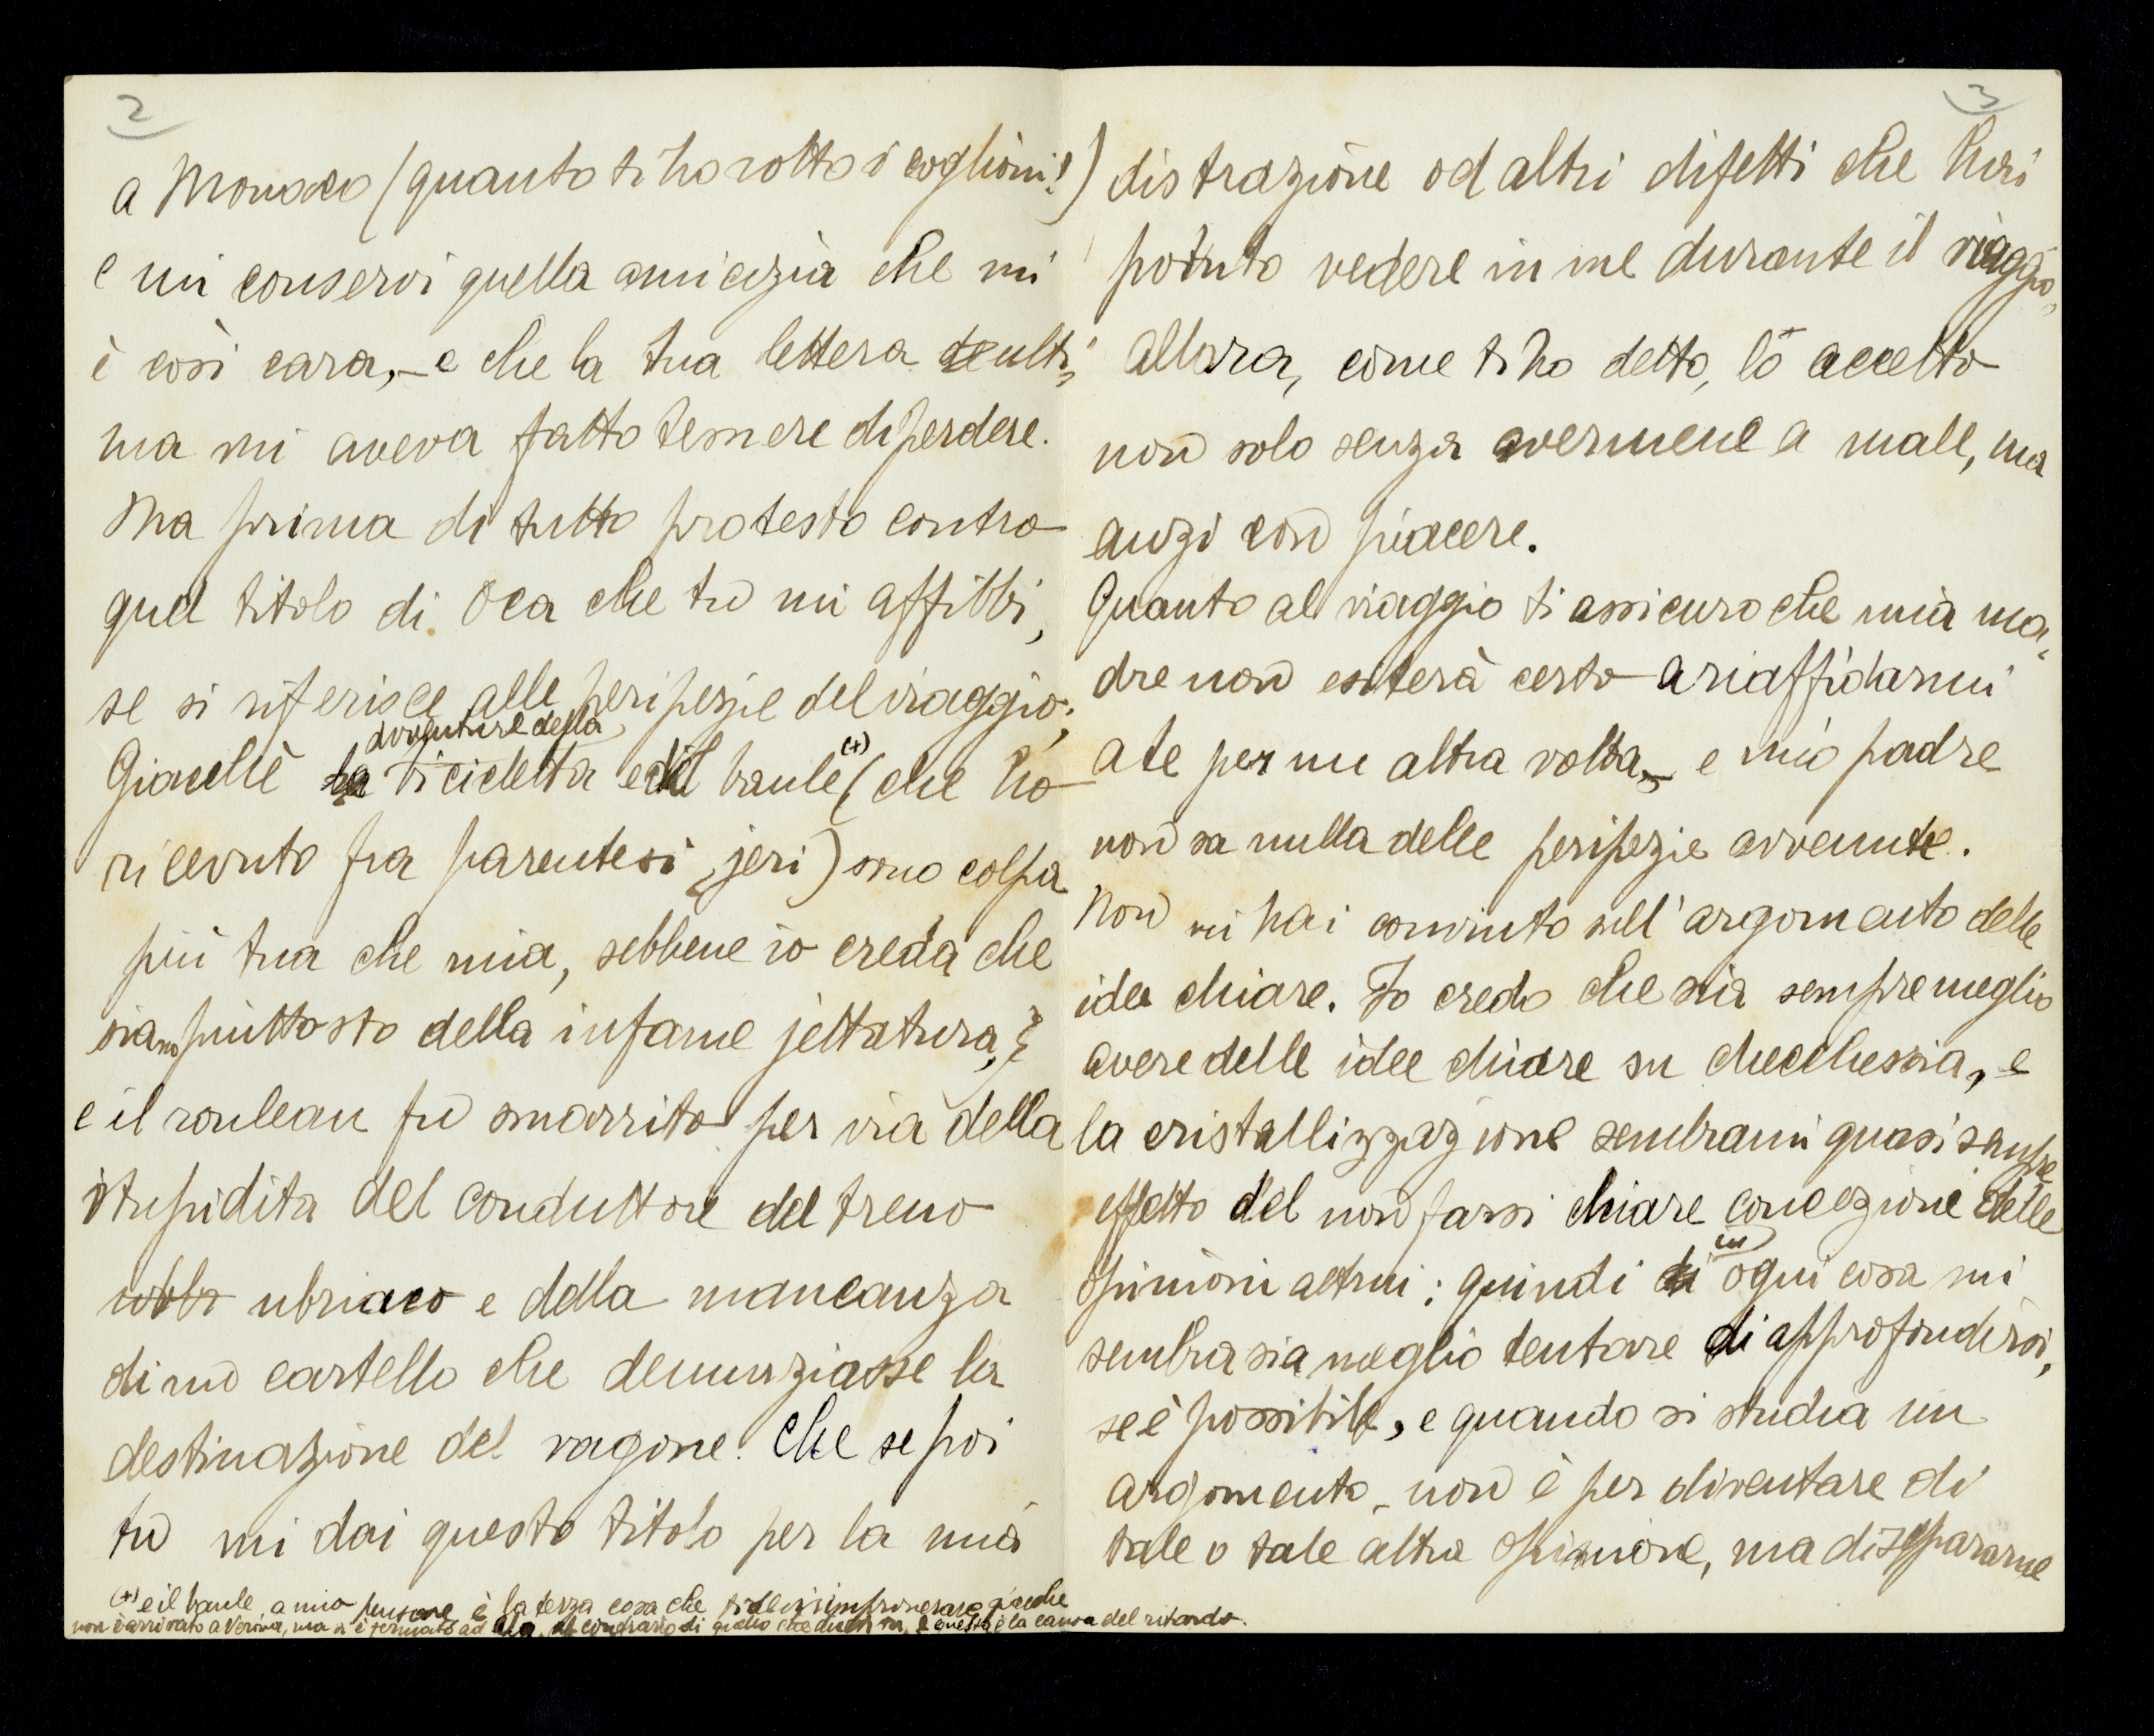 2
a Monaco (quanto ti ho rotto i coglioni!)
e mi conservi quella amicizia che mi
è così cara, – e che la tua lettera ulti=
ma mi aveva fatto temere di perdere.
Ma prima di tutto protesto contro
quel titolo di Oca che tu mi affibbi,
se si riferisce alle peripezie del viaggio;
avventure della
Giacchè la bicicletta e del baule (+) (che ho
ricevuto fra parentesi, jeri) sono colpa
più tua che mia, sebbene io creda che
siano piuttosto della infame jettatura,
e il rouleau fu smarrito per via della
stupidita del conduttore del treno
ubbr ubriaco e della mancanza
di un cartello che denunziasse la
destinazione del vagone. Che se poi
tu mi dai questo titolo per la mia
(+) e il baule, a mio pensare è la terza cosa che ti devi rimproverare giacche
non è arrivato a Verona, ma si è fermato ad Ala, al contrario di quello che dicevi tu, e questa è la causa del ritardo.
3
distrazione od altri difetti che hai
potuto vedere in me durante il viaggio,
allora, come ti ho detto, lo accetto
non solo senza avermene a male, ma
anzi con piacere.
Quanto al viaggio ti assicuro che mia ma=
dre non esiterà certo a riaffidarmi
a te per un altra volta, – e mio padre
non sa nulla delle peripezie avvenute.
Non mi hai convinto sull'argomento delle
idee chiare. Io credo che sia sempre meglio
avere delle idee chiare su checchessia, e
la cristallizzazione sembrami quasi sempre
effetto del non farsi chiare concezione delle
opinioni altrui; quindi di in ogni cosa mi
sembra sia meglio tentare di approfondirsi,
se è possibile, e quando si studia un
argomento – non è per diventare di
tale o tale altra opinione, ma di separarne